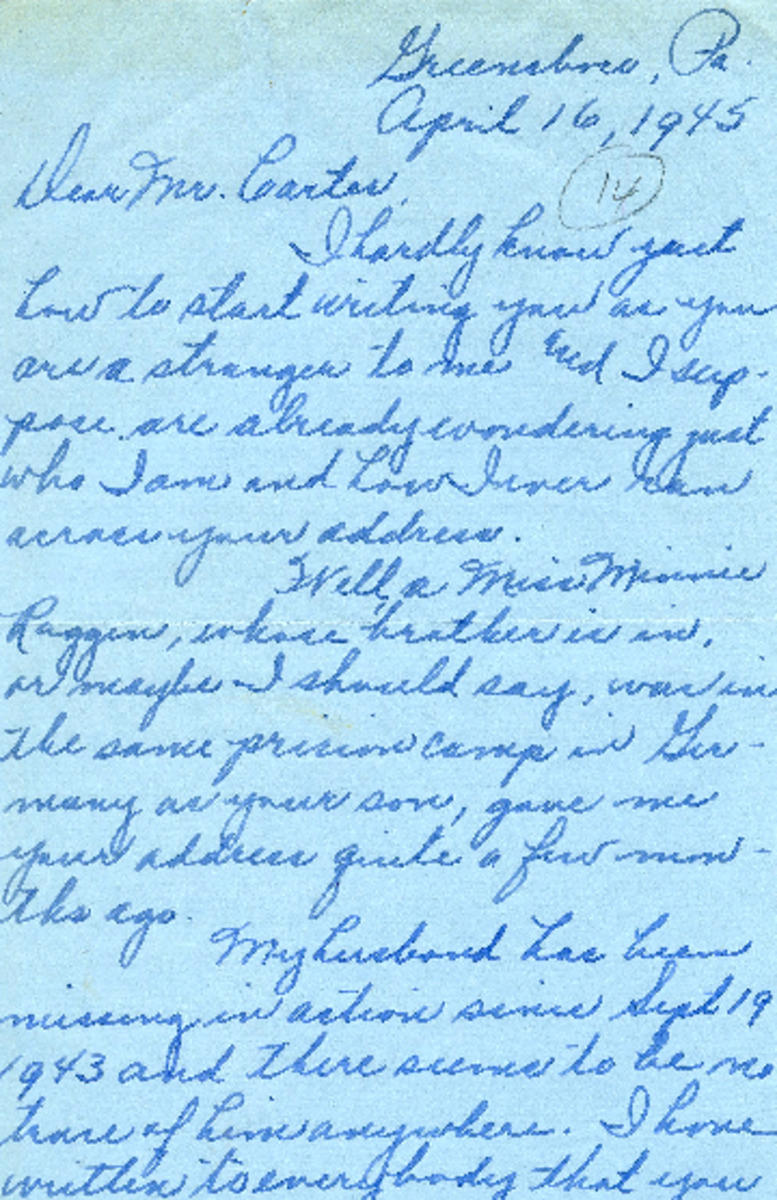 Greensboro, Pa.
April 16, 1945
Dear Mr. Carter,
14
I hardly know just
how to start writing you as you
are a stranger to me and I sup-
pose are already wondering just
who I am and how I ever ran
across your address.
Well, a Miss Minnie
whose brother is in,
or maybe I should say, was in
the same prison camp in Ger-
many as your son, gave me
your address quite a few mon-
ths ago.
My husband has been
missing in action since Sept 19
1943 and there seems to be no
trace of him anywhere. I have
written to everybody that you